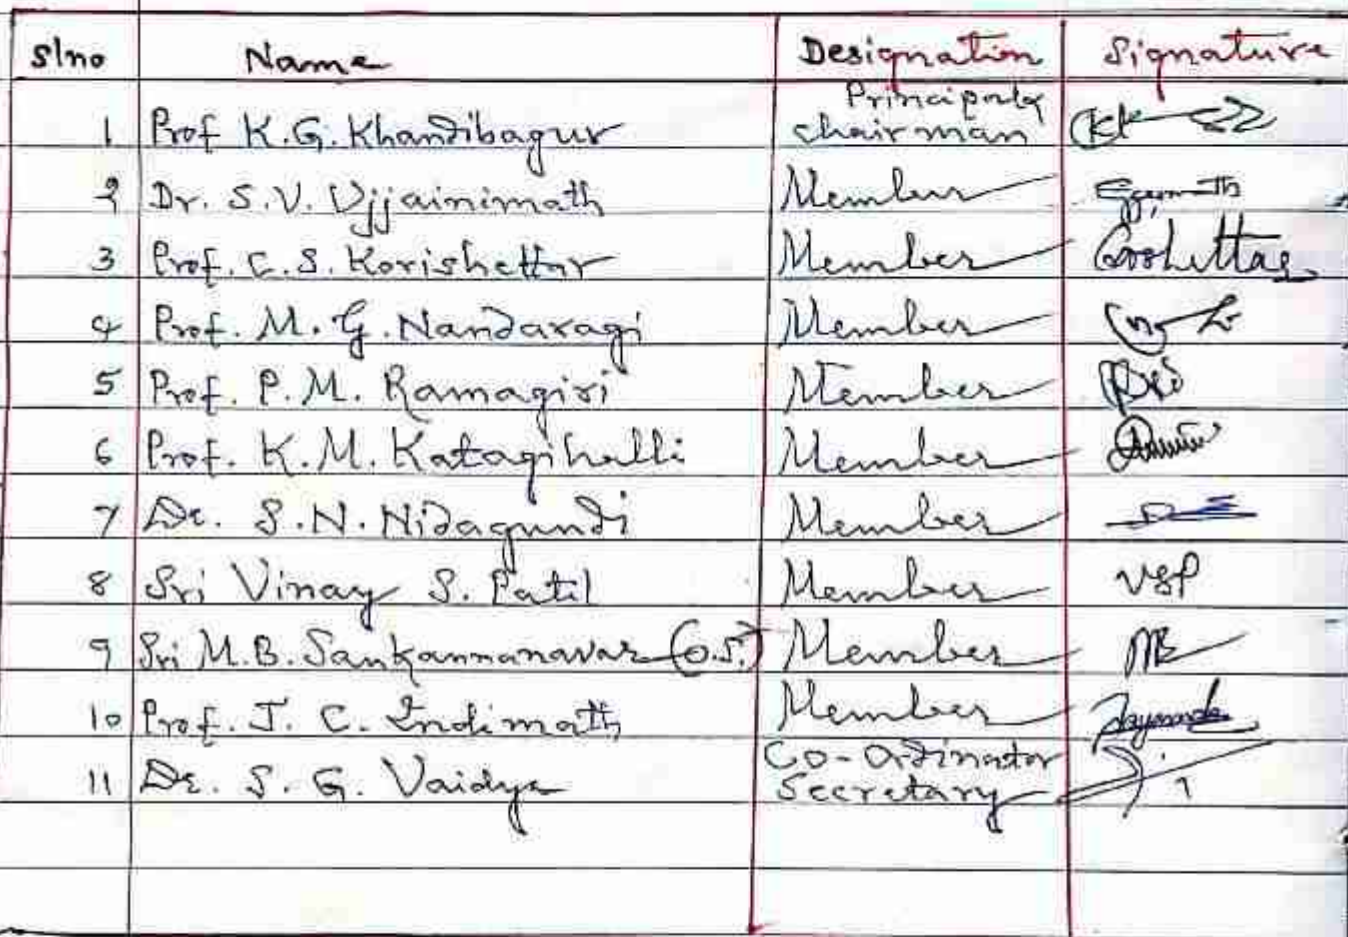 Slno Name Designation Signature
1 Prof K.G. Khandibagur Principal & chairman
2 Dr. S.V. Ujjainimath Member
3 Prof. C.S. Korishettar Member Corishettar
4 Prof. M.G. Nandaragi Member
5 Prof. P.M. Ramagiri Member
6 Prof. K.M. Katagihalli Member
7 Dr. S.N. Nidagundi Member
8 Sri Vinay S. Patil Member VSP
9 Sri M.B. Sankannanavar (O.S.) Member MB
10 Prof. J. C. Indimath Member
11 Dr. S. G. Vaidya Co-Ordinator Secretary